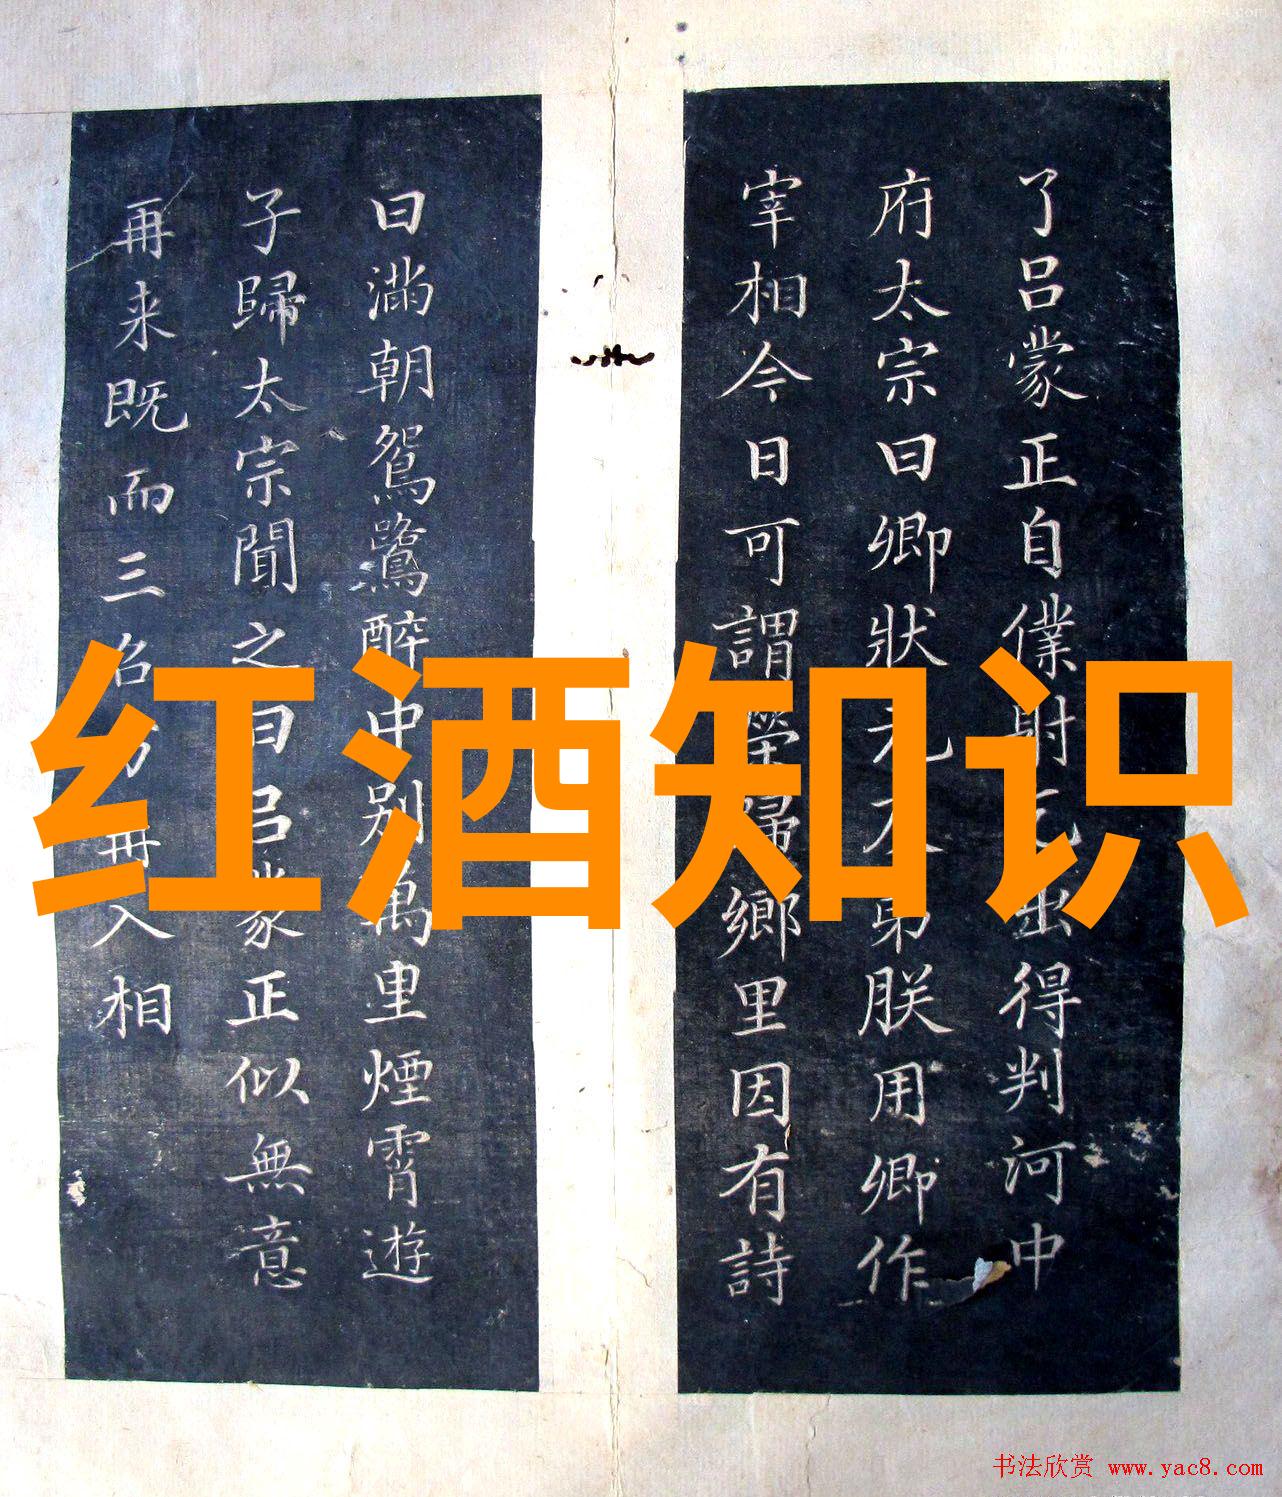 了吕蒙正自僕射出得判河中
府太宗曰卿狀元朕用卿作
宰相今日可謂榮歸鄉里因有詩
曰滿朝鴛鷺醉中别萬里煙霄遊
子歸太宗聞之曰吕蒙正似無意
再来既而三召方再入相
红酒知识
书法欣赏 www.yac8.com